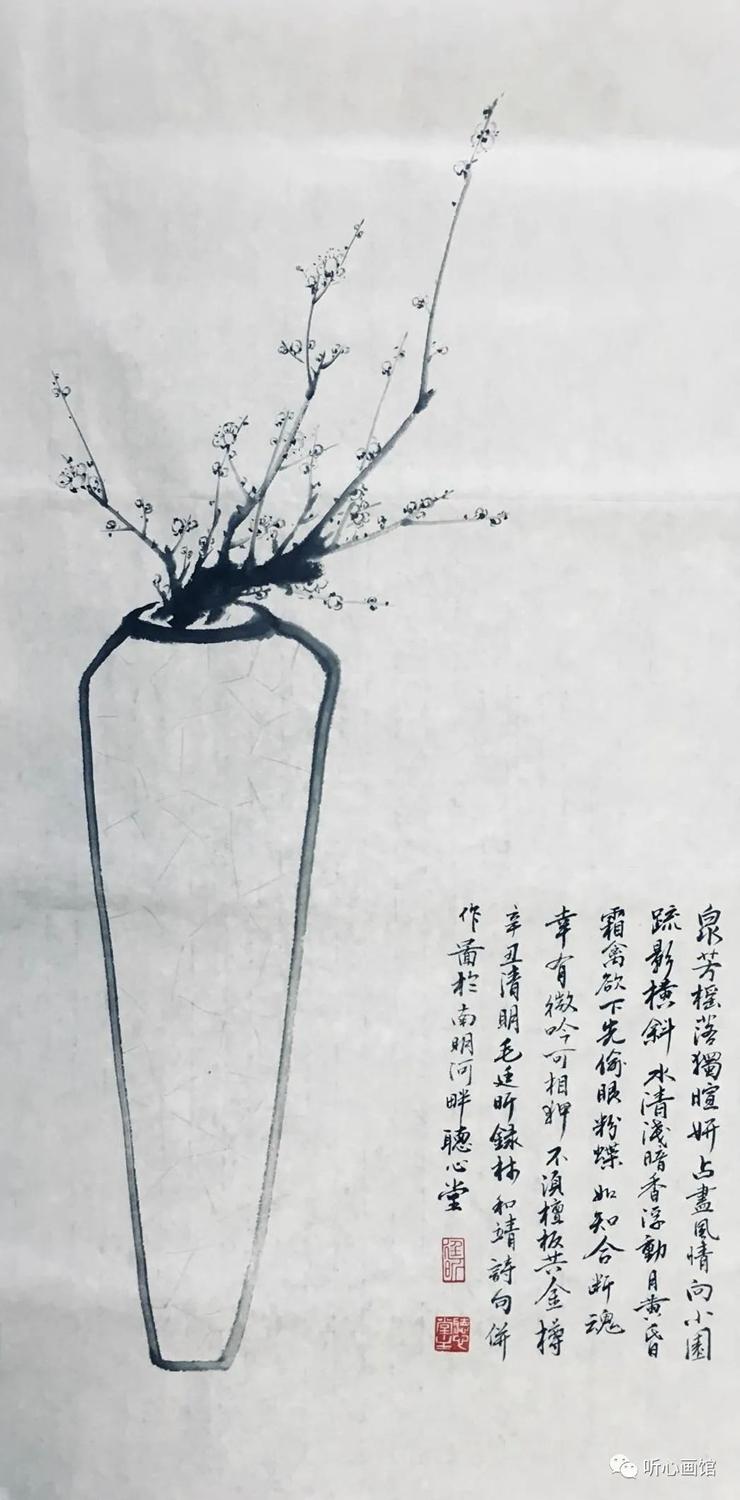 眾芳摇落獨暄妍占盡風情向小園
疏影橫斜水清淺暗香浮動月黄昏
霜禽欲下先偷眼粉蝶如知合断魂
幸有微吟可相狎不須檀板共金樽
辛丑清明毛廷昕録林和靖詩句併
作圖於南明河畔聽心堂
廷昕
聽心堂主
听心画馆